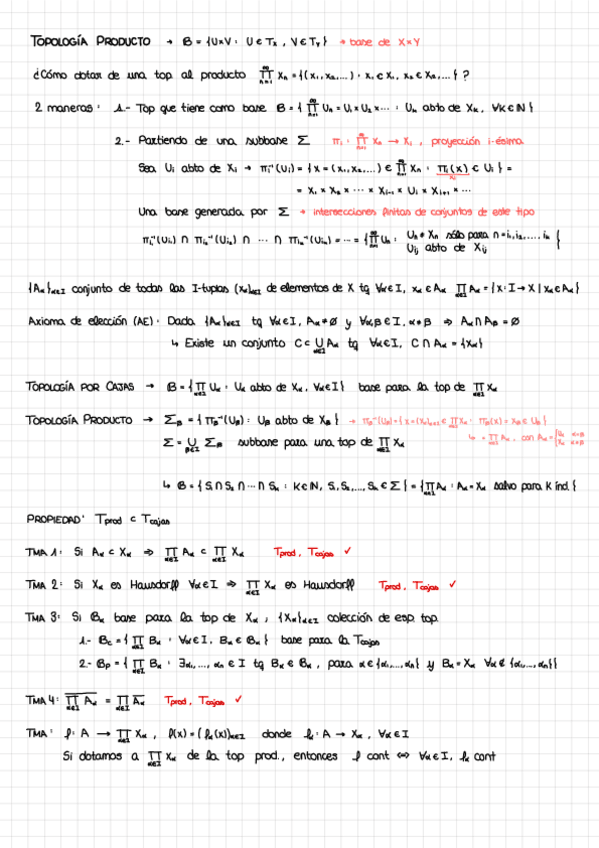 TOPOLOGÍA PRODUCTO → B = {U×V : U ∈ T_X, V ∈ T_Y} → base de X×Y
¿Cómo dotas de una top al producto ∏_{n=1}^∞ X_n = {(x_1, x_2, ...) : x_1 ∈ X_1, x_2 ∈ X_2, ...} ?
2 maneras: 1.- Top que tiene como base B = {∏_{n=1}^∞ U_n = U_1 × U_2 × ... : U_k abto de X_k, ∀k ∈ N}
2.- Partiendo de una subbase Σ π_i : ∏_{n=1}^∞ X_n → X_i, proyección i-ésima
Sea U_i abto de X_i → π_i^{-1}(U_i) = {x = (x_1, x_2, ...) ∈ ∏_{n=1}^∞ X_n : π_i(x) ∈ U_i} =
x_i
= X_1 × X_2 × ... × X_{i-1} × U_i × X_{i+1} × ...
Una base generada por Σ → intersecciones finitas de conjuntos de este tipo
π_{i_1}^{-1}(U_{i_1}) ∩ π_{i_2}^{-1}(U_{i_2}) ∩ ... ∩ π_{i_k}^{-1}(U_{i_k}) = ... = {∏_{n=1}^∞ U_n : U_n ≠ X_n sólo para n = i_1, i_2, ..., i_k
U_{i_j} abto de X_{i_j} }
{A_α}_{α∈I} conjunto de todas las I-tuplas (x_α)_{α∈I} de elementos de X tq ∀α∈I, x_α ∈ A_α ∏_{α∈I} A_α = {x : I → X | x_α ∈ A_α}
Axioma de elección (AE): Dada {A_α}_{α∈I} tq ∀α∈I, A_α ≠ ∅ y ∀α,β∈I, α≠β ⇒ A_α ∩ A_β = ∅
↳ Existe un conjunto C ⊂ ∪_{α∈I} A_α tq ∀α∈I, C ∩ A_α = {x_α}
TOPOLOGÍA POR CAJAS → B = {∏_{α∈I} U_α : U_α abto de X_α, ∀α∈I} base para la top de ∏_{α∈I} X_α
TOPOLOGÍA PRODUCTO → Σ_β = {π_β^{-1}(U_β) : U_β abto de X_β} → π_β^{-1}(U_β) = {x = (x_α)_{α∈I} ∈ ∏_{α∈I} X_α : π_β(x) = x_β ∈ U_β}
Σ = ∪_{β∈I} Σ_β subbase para una top de ∏_{α∈I} X_α ↳ = ∏_{α∈I} A_α, con A_α = {U_α α=β
X_α α≠β
↳ B = {S_1 ∩ S_2 ∩ ... ∩ S_k : k ∈ N, S_1, S_2, ..., S_k ∈ Σ} = {∏_{α∈I} A_α : A_α = X_α salvo para k ind.}
PROPIEDAD: T_prod ⊂ T_cajas
TMA 1: Si A_α ⊂ X_α ⇒ ∏_{α∈I} A_α ⊂ ∏_{α∈I} X_α T_prod, T_cajas ✓
TMA 2: Si X_α es Hausdorff ∀α∈I ⇒ ∏_{α∈I} X_α es Hausdorff T_prod, T_cajas ✓
TMA 3: Si B_α base para la top de X_α, {X_α}_{α∈I} colección de esp. top.
1.- B_c = {∏_{α∈I} B_α : ∀α∈I, B_α ∈ B_α} base para la T_cajas
2.- B_p = {∏_{α∈I} B_α : ∃α_1, ..., α_n ∈ I tq B_α ∈ B_α, para α ∈ {α_1, ..., α_n} y B_α = X_α ∀α ∉ {α_1, ..., α_n}}
TMA 4: \overline{∏_{α∈I} A_α} = ∏_{α∈I} \overline{A_α} T_prod, T_cajas ✓
TMA: f : A → ∏_{α∈I} X_α, f(x) = (f_α(x))_{α∈I} donde f_α : A → X_α, ∀α∈I
Si dotamos a ∏_{α∈I} X_α de la top prod., entonces f cont ⇔ ∀α∈I, f_α cont